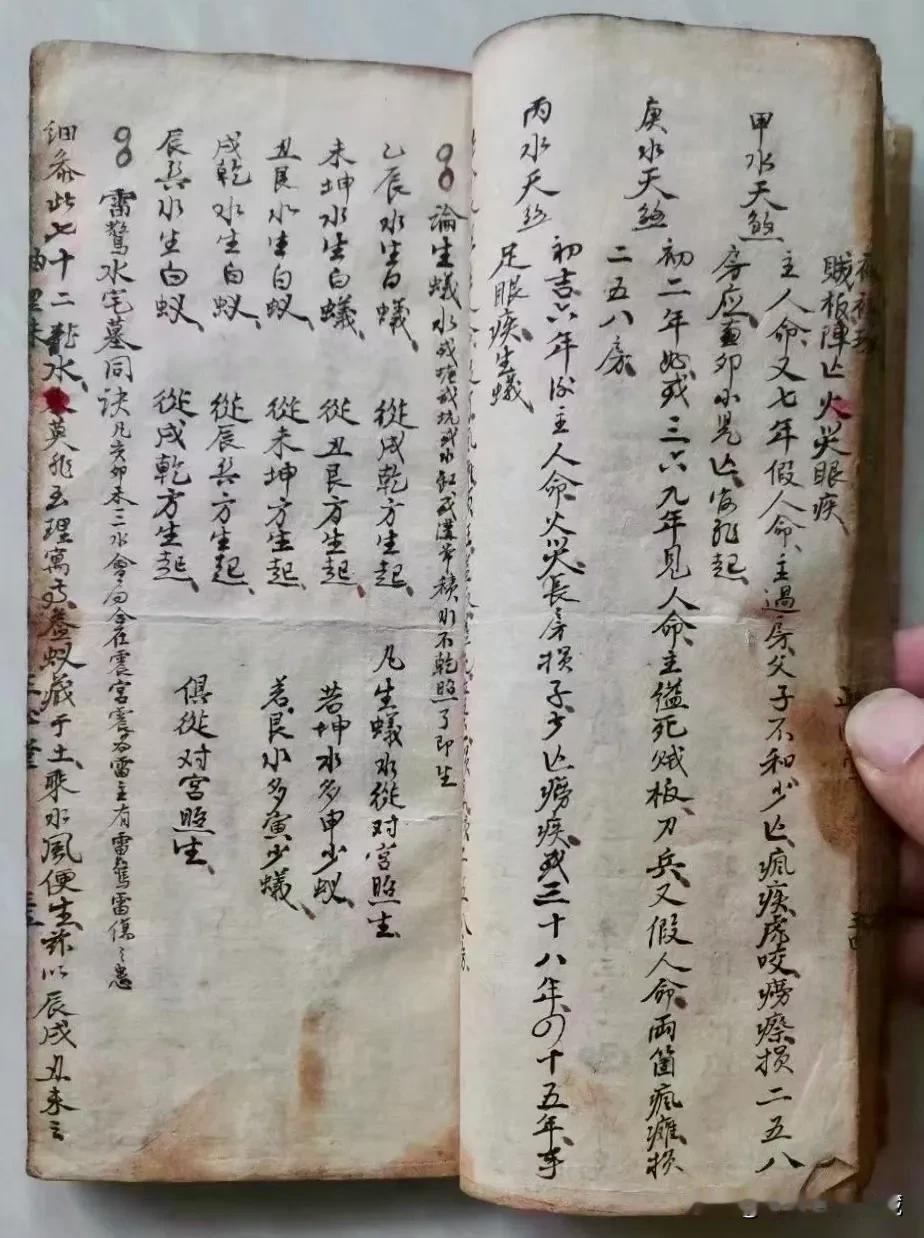 贼板陣亡火災眼疾
甲水天煞
主人命又七年假人命、主過房父子不和少亡瘋疾虎咬癆瘵损二五八
房应寅卯小児亡
庚水天煞
初二年
或三六九年見人命、主缢死贼板、刀兵又假人命両箇瘋癱损
二五八房
丙水天煞
初吉六年後主人命、火災長房损子少亡癆疾或三十八年、四十五年事
足眼疾生蟻
論生蟻水或塘或坑或水缸或溝常積水不乾照了即生
乙辰水生白蟻、從戌乾方生起、凡生蟻水從对宮照生
未坤水生白蟻、從丑艮方生起、若坤水多申少蚁、
丑艮水生白蚁、從未坤方生起、若艮水多寅少蟻、
戌乾水生白蚁、從辰巽方生起、
辰巽水生白蚁、從戌乾方生起、俱從对宮照生、
雷驚水宅墓同诀凡亥卯未三水會局合在震宮震為雷主有雷驚雷傷之患
細參此七十二龍水、英 玄理寓焉、蓋蚁藏于土乘水風便生兹以辰戌丑未之